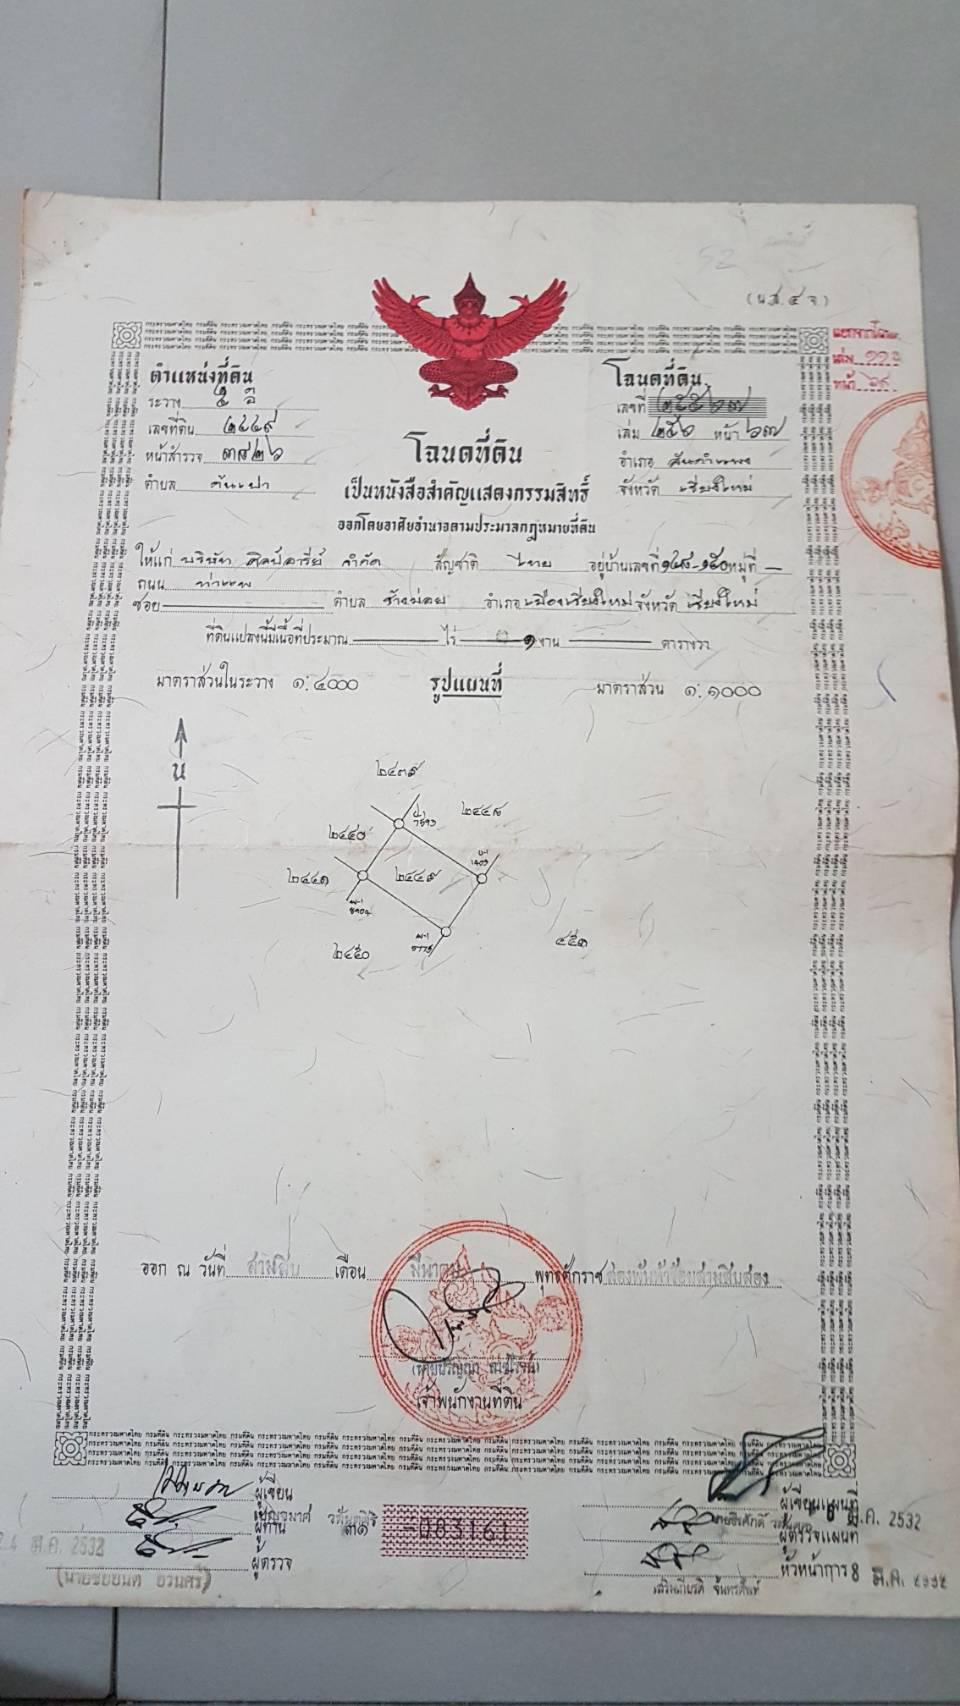 (น.ส. ๔ จ)
ตำแหน่งที่ดิน
ระวาง
เลขที่ดิน ๒๔๔๙
หน้าสำรวจ ๓๙๒๖
ตำบล ต้นเปา
โฉนดที่ดิน
เลขที่ ๒๕๕๖๗
เล่ม ๒๕๖ หน้า ๖๗
อำเภอ สันกำแพง
จังหวัด เชียงใหม่
โฉนดที่ดิน
เป็นหนังสือสำคัญแสดงกรรมสิทธิ์
ออกโดยอาศัยอำนาจตามประมวลกฎหมายที่ดิน
ให้แก่ บริษัท ศิลป์อารีย์ จำกัด สัญชาติ ไทย อยู่บ้านเลขที่ ๑๔๘-๑๕๐ หมู่ที่ —
ถนน ท่าแพ
ซอย — ตำบล ช้างม่อย อำเภอ เมืองเชียงใหม่ จังหวัด เชียงใหม่
ที่ดินแปลงนี้มีเนื้อที่ประมาณ — ไร่ ๑ งาน — ตารางวา
มาตราส่วนในระวาง ๑:๔๐๐๐ รูปแผนที่ มาตราส่วน ๑:๑๐๐๐
น
๒๔๓๙
๒๔๔๘
๒๔๔๐
๒๔๔๑
๒๔๔๙
๒๔๕๐
๔๕๑
ออก ณ วันที่ สามสิบ เดือน มีนาคม พุทธศักราช สองพันห้าร้อยสามสิบสอง
เจ้าพนักงานที่ดิน
ผู้เขียน
ผู้ทาน
ผู้ตรวจ
24 มี.ค. 2532
๓๑ 083161
ผู้เขียนแผนที่
8 มี.ค. 2532
ผู้ตรวจแผนที่
หัวหน้าการ 8 มี.ค. 2532
เสริมเกียรติ จันทรตันท์